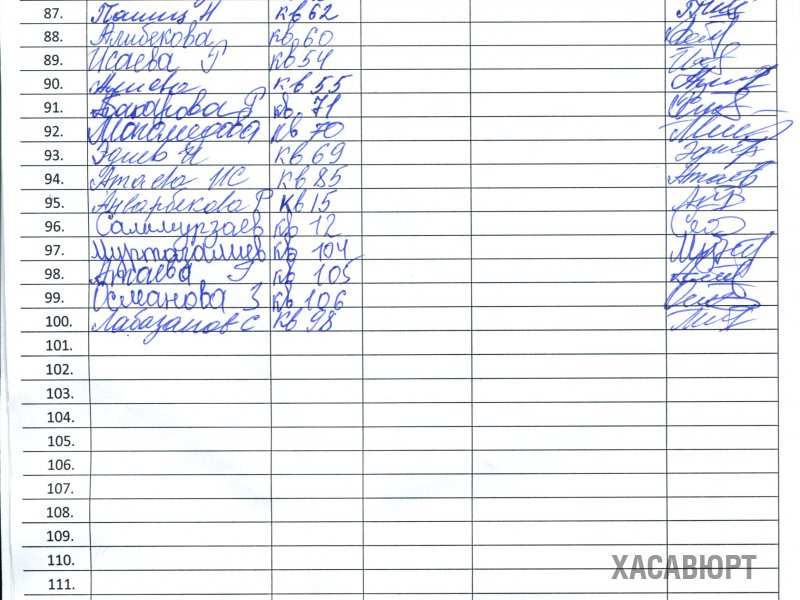 87. кв 62
88. Алибекова кв 60
89. Исаева Р кв 54
90. Алиева кв 55
91. Бакарова Р кв 71
92. Магомедова кв 70
93. Эдиев И кв 69
94. Атаева ИС кв 85
95. Анварбекова Р кв 15
96. Салимурзаев кв 12
97. Муртазалиев кв 104
98. Атаева Э кв 105
99. Османова З кв 106
100. Лабазанов С кв 98
101.
102.
103.
104.
105.
106.
107.
108.
109.
110.
111.
ХАСАВЮРТ